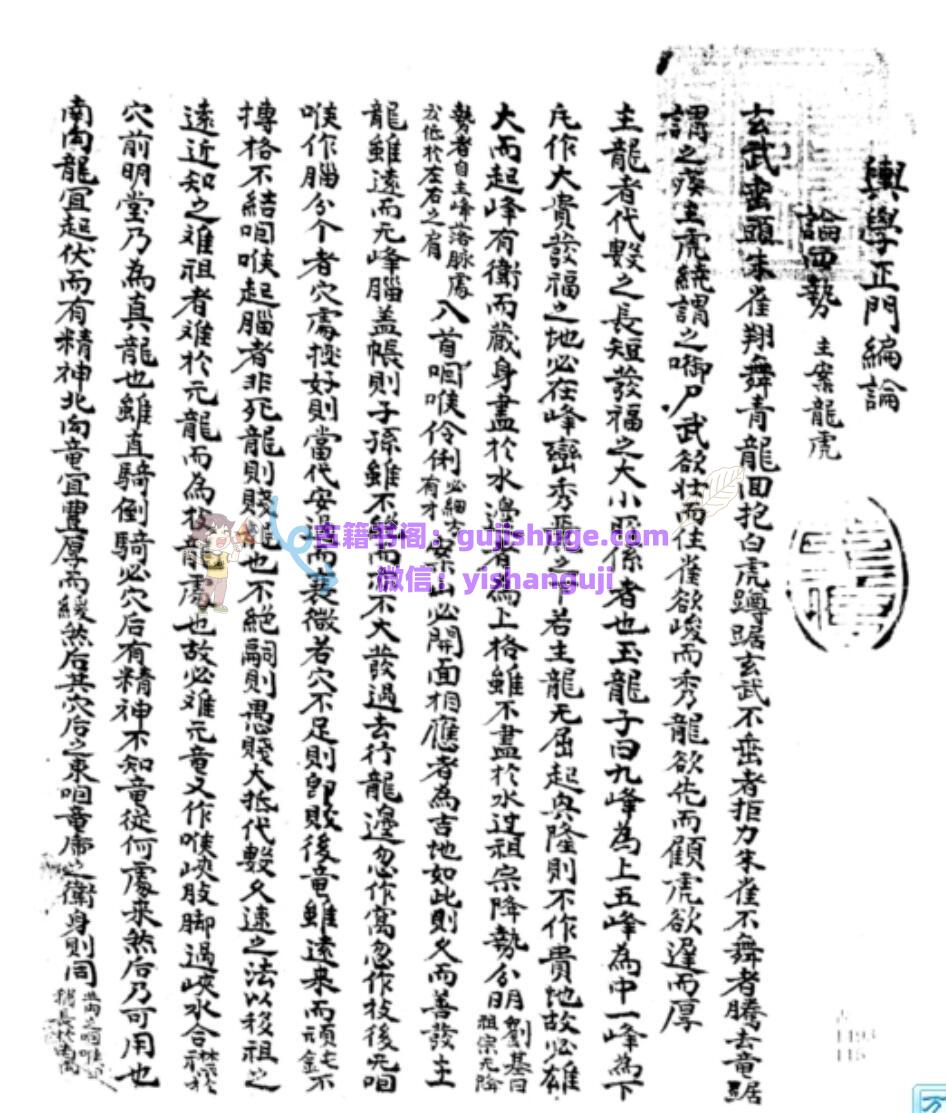 輿學正門編論
論四勢 主案龍虎
玄武垂頭朱雀翔舞青龍回抱白虎蹲踞玄武不垂者拒尸朱雀不舞者騰去竜踞
謂之疾主虎繞謂之啣尸武欲壮而住雀欲峻而秀龍欲先而顧虎欲遅而厚
主龍者代數之長短發福之大小所係者也玉龍子曰九峰為上五峰為中一峰為下
凡作大貴發福之地必在峰巒秀麗之下若主龍无屈起與隆則不作貴地故必雄
大而起峰有衛而藏身盡於水邊者為上格雖不盡於水过祖宗降勢分明 劉基曰祖宗元降
勢者自主峰落脉處 於左右之肩 入首咽喉伶俐 必細 有才 案山必開面相應者為吉地如此則久而善發主
龍雖遠而无峰腦盖帳則子孫雖不絶而亦不大發過去行龍邊忽作窩忽作枝後无咽
喉作腦分个者穴處極好則當代安 而衰微若穴不足則卽敗後竜雖遠来而頑 不
摶格不結咽喉起腦者非死龍則賤龍也不絶嗣則愚賤大抵代數久遠之法以移祖之
遠近知之难祖者难於元龍而為 龍處也故必难元竜又作喉峽股脚過峽水合
穴前明堂乃為真龍也雖直騎倒騎必穴后有精神不知竜從何處来然后乃可用也
南向龍宜起伏而有精神北向竜宜豊厚而緩然后其穴后之束咽竜虎之衛身則同
古籍书阁：gujishuge.com
微信：yishanguji